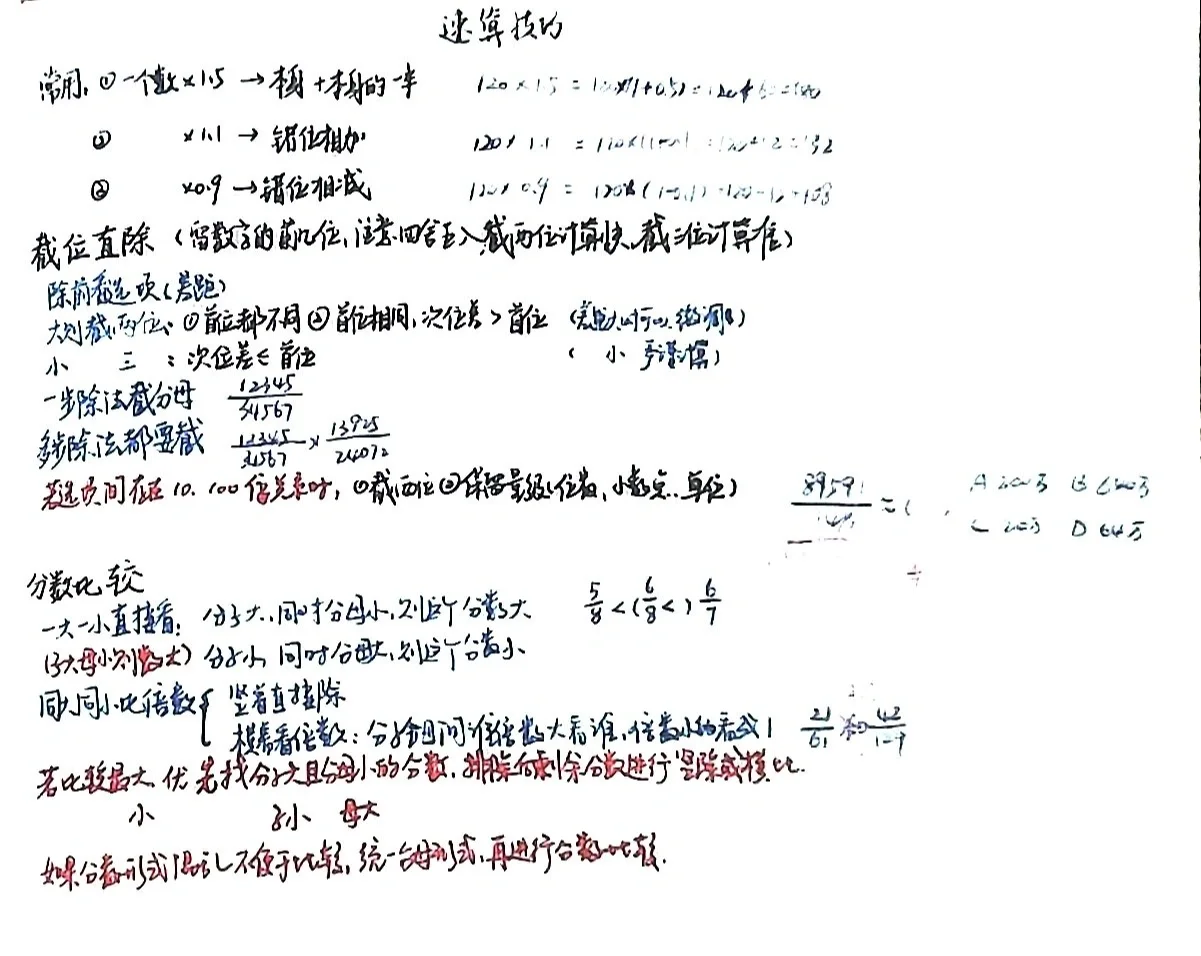 速算技巧
常用: ① 一个数×1.5 → 本身+本身的一半 120×1.5 = 120×(1+0.5) = 120+60=180
② ×1.1 → 错位相加 120×1.1 = =132
③ ×0.9 → 错位相减 120×0.9 = 120×(1-0.1) =120-12=108
截位直除 (留数字的前几位,注意四舍五入 截两位计算快,截三位计算准)
除前看选项(差距)
大则截两位: ①首位都不同 ②首位相同,次位差>首位 (差距大时可以微调)
小 三 : 次位差≤首位 ( 小 严谨计算)
一步除法截分母 12345/34567
多步除法都要截 12345/34567 × 13925/24072
若选项间存在10、100倍关系时, ①截两位 ②保留量级(位数,小数点,单位)
≈( A B
C D 64万
分数比较
一大一小直接看: 分子大,同时分母小,则这个分数大 5/8 < (6/8 <) 6/7
(子大母小则数大) 分子小,同时分母大,则这个分数小
同大同小比倍数{ 竖着直接除
横着看倍数: 分子分母间谁倍数大看谁,倍数小的看成1 21/61 和
若比较最大,优先找分子大且分母小的分数,排除后剩余分数进行竖除或横比.
小 子小 母大
如果分数形式 不便于比较,统一 形式,再进行分数比较.